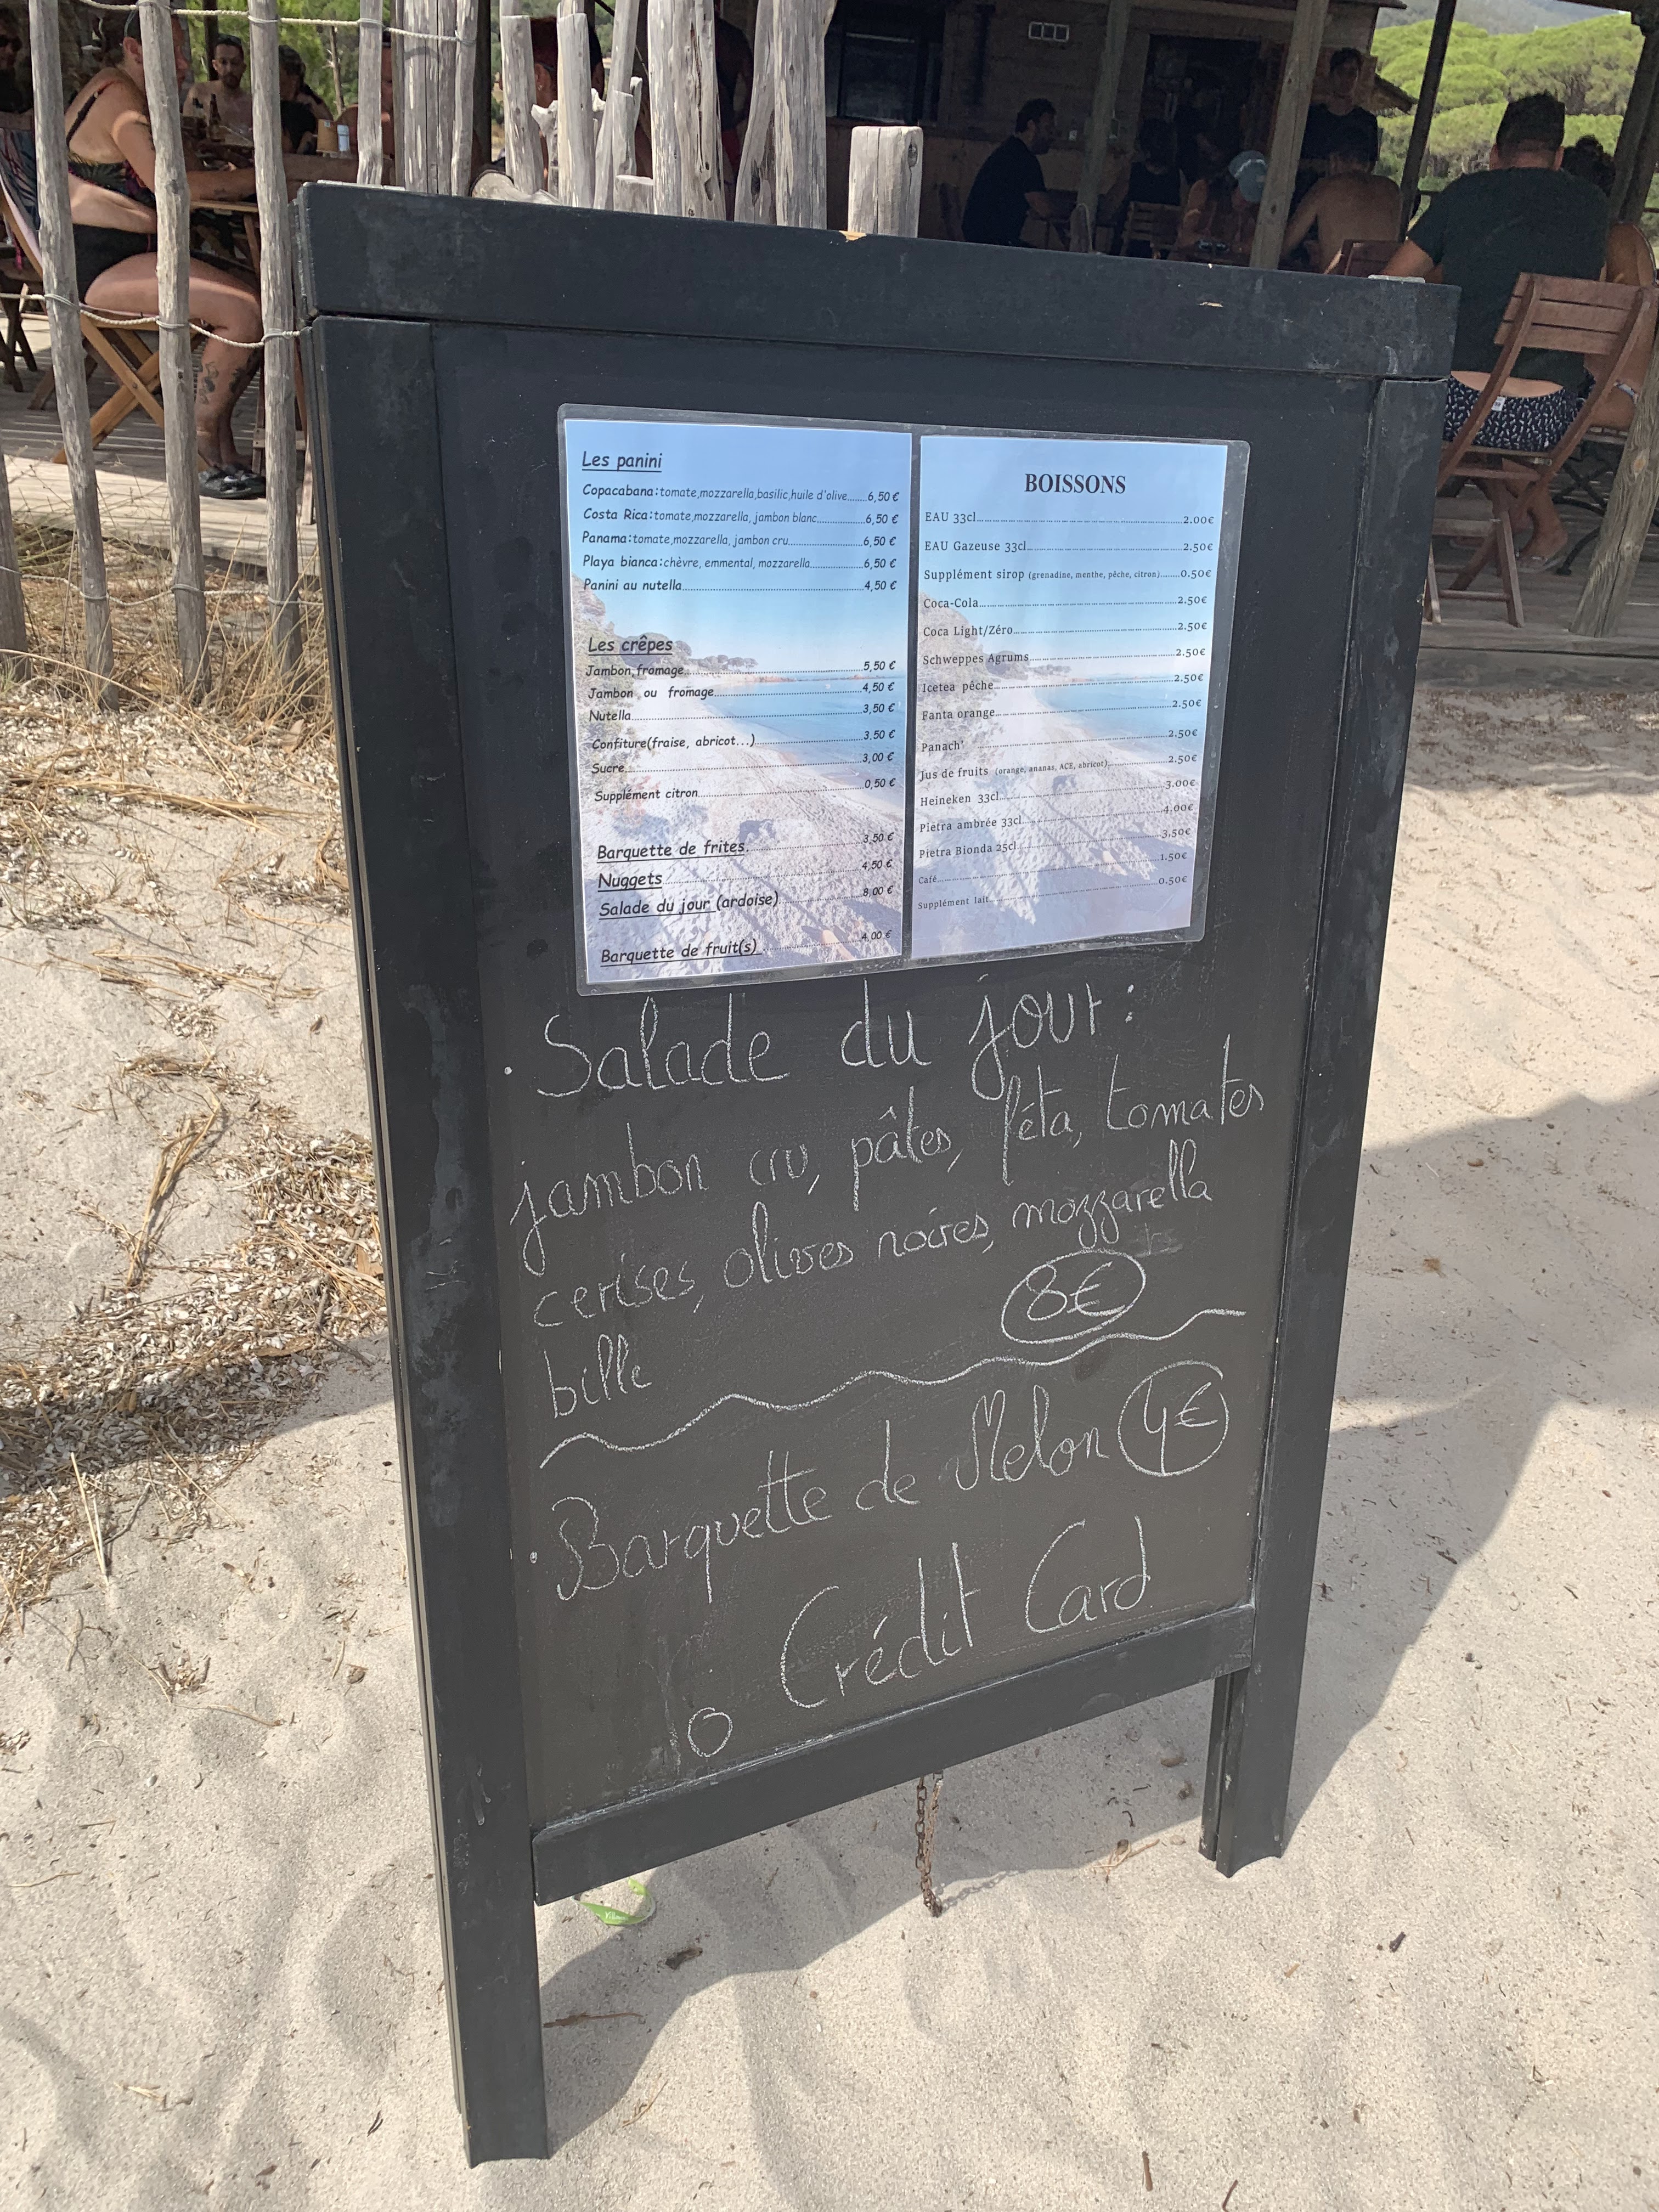 Les panini
Copacabana:tomate,mozzarella,basilic,huile d'olive........6,50 €
Costa Rica:tomate,mozzarella, jambon blanc........6,50 €
Panama:tomate,mozzarella, jambon cru........6,50 €
Playa bianca:chèvre, emmental, mozzarella........6,50 €
Panini au nutella........4,50 €
Les crêpes
Jambon,fromage........5,50 €
Jambon ou fromage........4,50 €
Nutella........3,50 €
Confiture(fraise, abricot...)........3,50 €
Sucre........3,00 €
Supplément citron........0,50 €
Barquette de frites........3,50 €
Nuggets........4,50 €
Salade du jour (ardoise)........8,00 €
Barquette de fruit(s)........4,00 €
BOISSONS
EAU 33cl........2.00€
EAU Gazeuse 33cl........2.50€
Supplément sirop (grenadine, menthe, pêche, citron)........0.50€
Coca-Cola........2.50€
Coca Light/Zéro........2.50€
Schweppes Agrums........2.50€
Icetea pêche........2.50€
Fanta orange........2.50€
Panach'........2.50€
Jus de fruits (orange, ananas, ACE, abricot)........2.50€
Heineken 33cl........3.00€
Pietra ambrée 33cl........4.00€
Pietra Bionda 25cl........3,50€
Café........1.50€
Supplément lait........0.50€
. Salade du jour :
jambon cru, pâtes, féta, tomates
cerises, olives noires, mozzarella
bille 8€
. Barquette de Melon 4€
Crédit Card